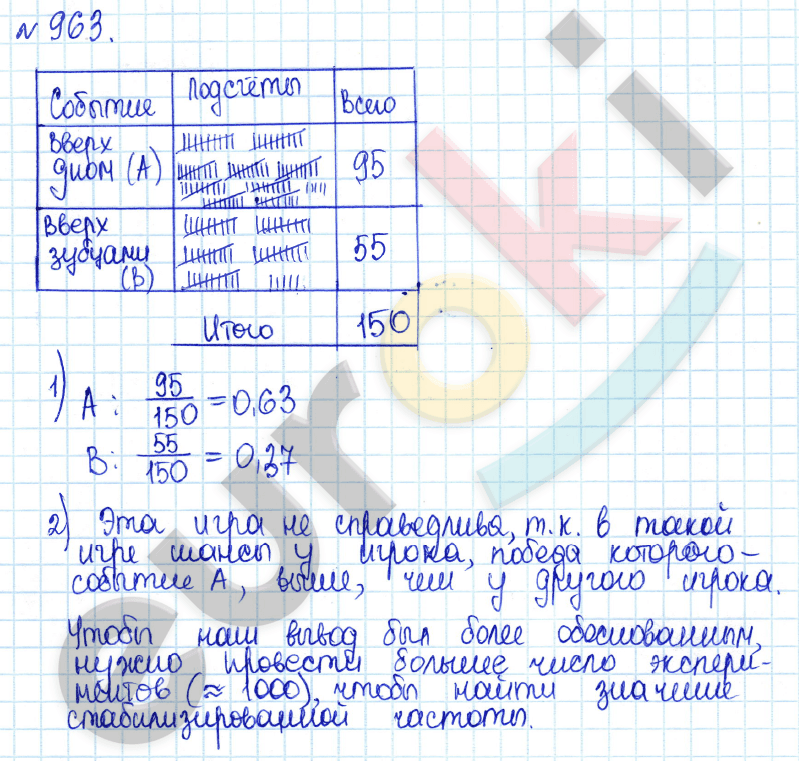 № 963.
Событие Подсчёты Всего
Вверх
дном (A) 95
Вверх
зубцами 55
(B)
Итого 150
1) A: 95/150 = 0,63
B: 55/150 = 0,37
2) Эта игра не справедлива, т.к. в такой
игре шансы у игрока, победа которого –
событие A, выше, чем у другого игрока.
Чтобы наш вывод был более обоснованным,
нужно провести большее число экспери-
ментов (≈ 1000), чтобы найти значение
стабилизированной частоты.
euroki